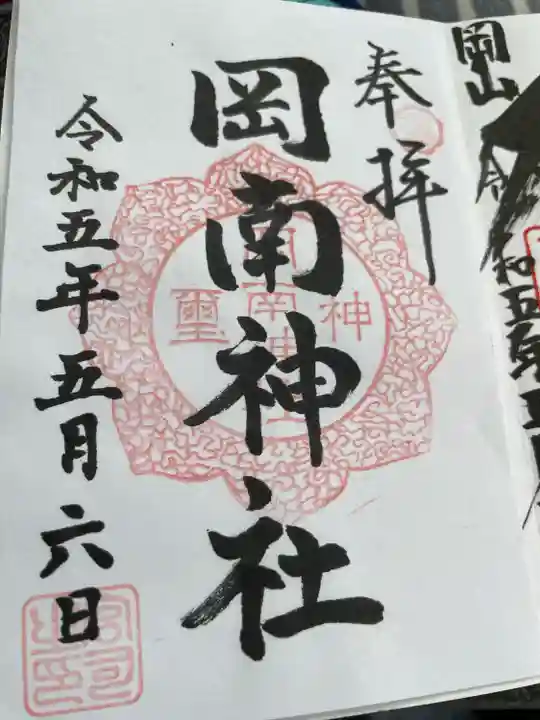 岡山
令和五年五月
奉拝
岡南神社
令和五年五月六日
神
璽